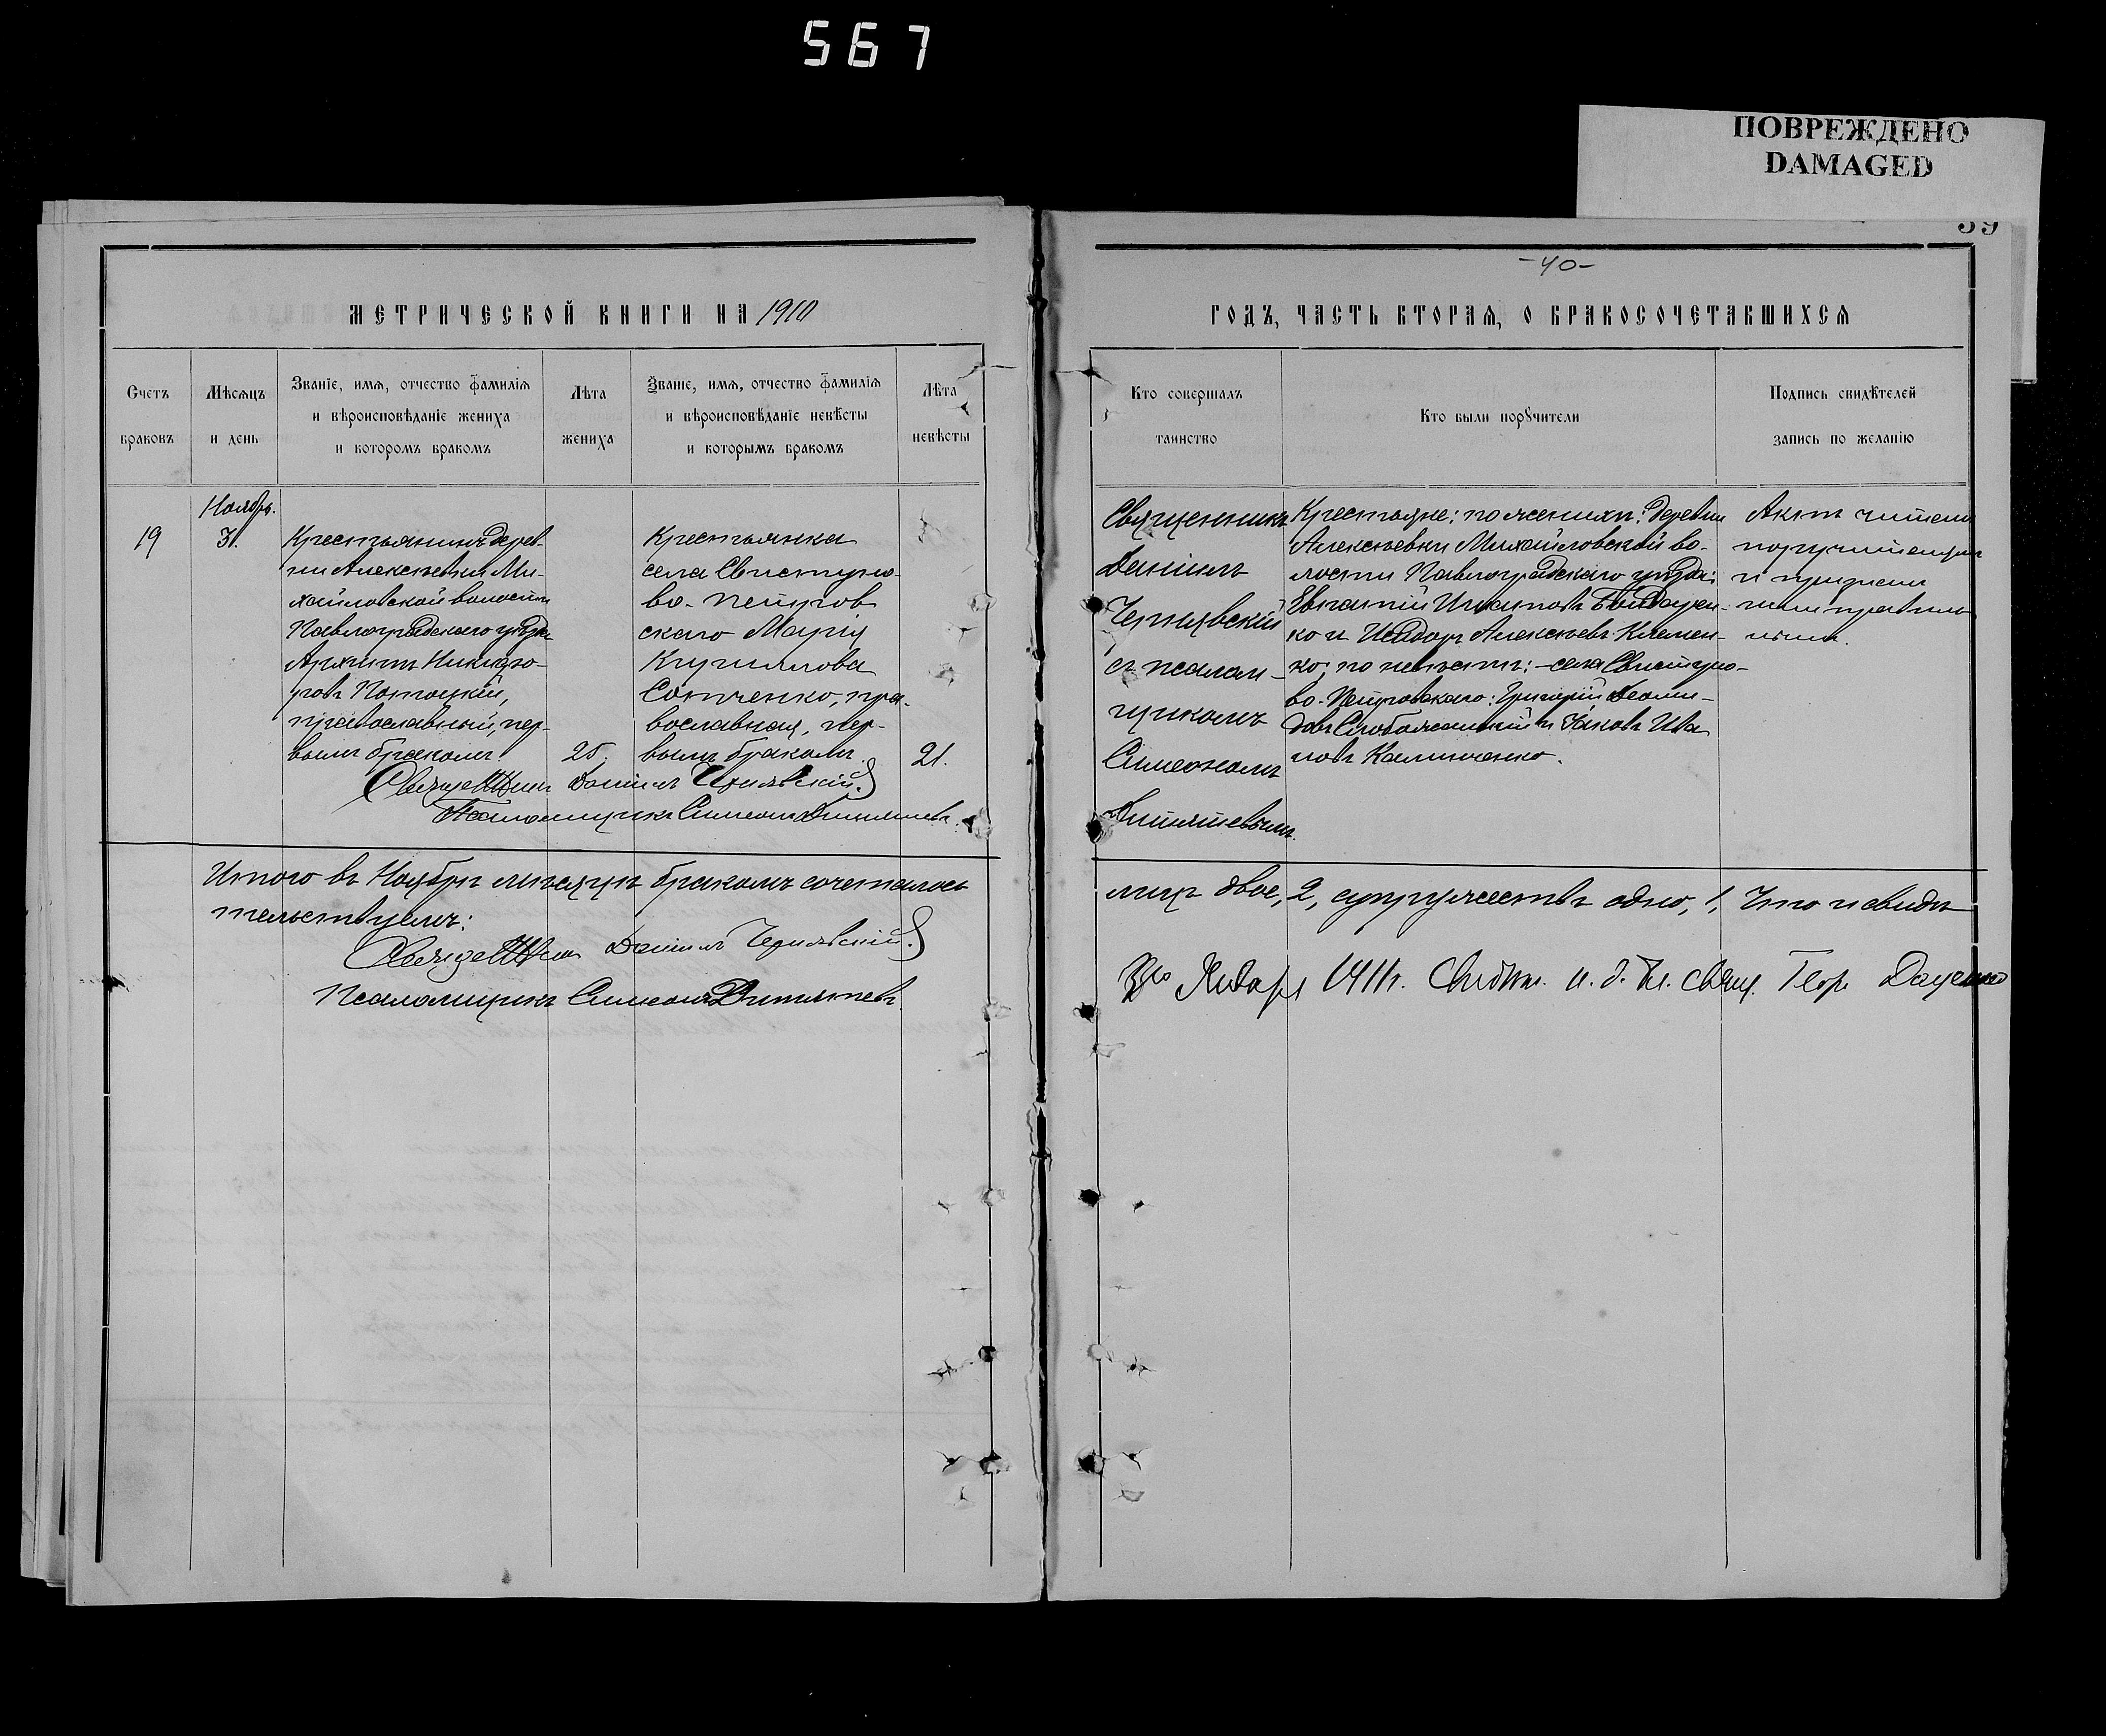 567
ПОВРЕЖДЕНО
DAMAGED
39
-40-
МЕТРИЧЕСКОЙ КНИГИ НА 1910
ГОДЪ, ЧАСТЬ ВТОРАЯ, О БРАКОСОЧЕТАВШИХСЯ
Счетъ браковъ
Мѣсяцъ и день
Званіе, имя, отчество фамилія
и вѣроисповѣданіе жениха
и которомъ бракомъ
Лѣта жениха
Званіе, имя, отчество фамилія
и вѣроисповѣданіе невѣсты
и которымъ бракомъ
Лѣта невѣсты
Кто совершалъ таинство
Кто были поручители
Подпись свидѣтелей
запись по желанію
Ноябрь.
19
31.
Крестьянинъ дерев-
ни Алексѣевки Ми-
хайловской волости
Павлоградскаго уѣзда
Никифо-
ровъ Потоцкій,
православный, пер-
вымъ бракомъ
Крестьянка
села Свистуно-
во-Петров
скаго Марія
Кириллова
Сотченко, пра-
вославная, пер-
вымъ бракомъ.
21.
Священникъ Даніилъ Чернявскій.
Псаломщикъ Симеонъ
Священникъ
Даніилъ
Чернявскій
съ псалом-
щикомъ
Симеономъ
Крестьяне: по женихѣ: деревни
Алексѣевки Михайловской во-
лости Павлоградскаго уѣзда:
Евгаѳій Игнатовъ Бондарен-
ко и Исидоръ Алексѣевъ Клемен-
ко; по невѣстѣ: села Свистуно-
во-Петровскаго: Григорій
Слобожанскій и Іаковъ Ива
новъ Калиниченко.
Актъ читали
поручителямъ
и признали
правиль
нымъ.
Итого въ Ноябрѣ мѣсяцѣ бракомъ сочеталось
лицъ двое, 2, супружествъ одно, 1, Что и свидѣ
тельствуемъ:
Священникъ Даніилъ Чернявскій.
Псаломщикъ Симеонъ
Января 1911г. и. д. Бл. свящ. Геор. Даценко